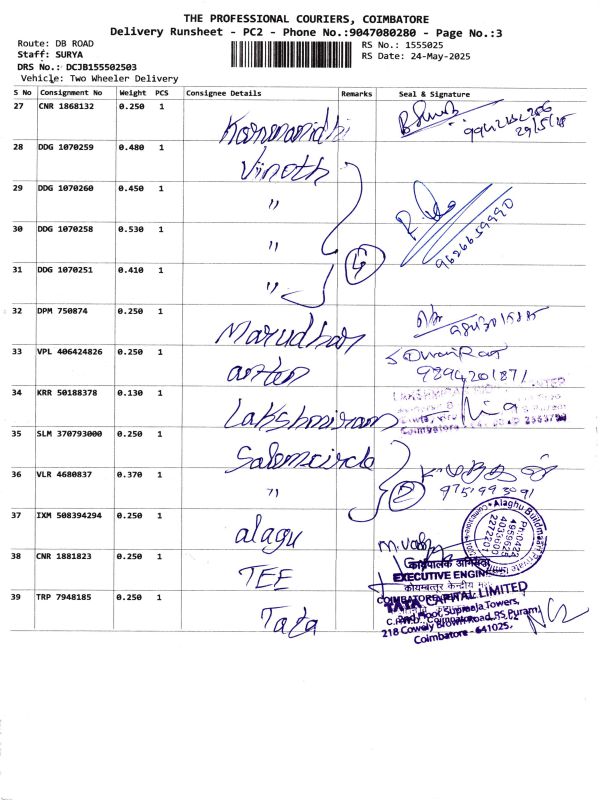 THE PROFESSIONAL COURIERS, COIMBATORE
Delivery Runsheet - PC2 - Phone No.:9047080280 - Page No.:3
Route: DB ROAD
RS No.: 1555025
Staff: SURYA
RS Date: 24-May-2025
DRS No.: DCJB155502503
Vehicle: Two Wheeler Delivery
S No Consignment No Weight PCS Consignee Details Remarks Seal & Signature
27 CNR 1868132 0.250 1
28 DDG 1070259 0.480 1 Vinoth
29 DDG 1070260 0.450 1 "
30 DDG 1070258 0.530 1 "
31 DDG 1070251 0.410 1 " 4
9626659990
32 DPM 750874 0.250 1
33 VPL 406424826 0.250 1
34 KRR 50188378 0.130 1 Lakshmiram
35 SLM 370793000 0.250 1 Salemcircle
36 VLR 4680837 0.370 1 " 2
37 IXM 508394294 0.250 1 alagu
Alaghu Buildmaster Private Limited
Ph:0422
38 CNR 1881823 0.250 1 TEE
EXECUTIVE ENGINEER
39 TRP 7948185 0.250 1 Tata
TATA CAPITAL LIMITED
2nd Floor, Supreaja Towers,
218 Cowely Brown Road, RS Puram,
Coimbatore - 641025.